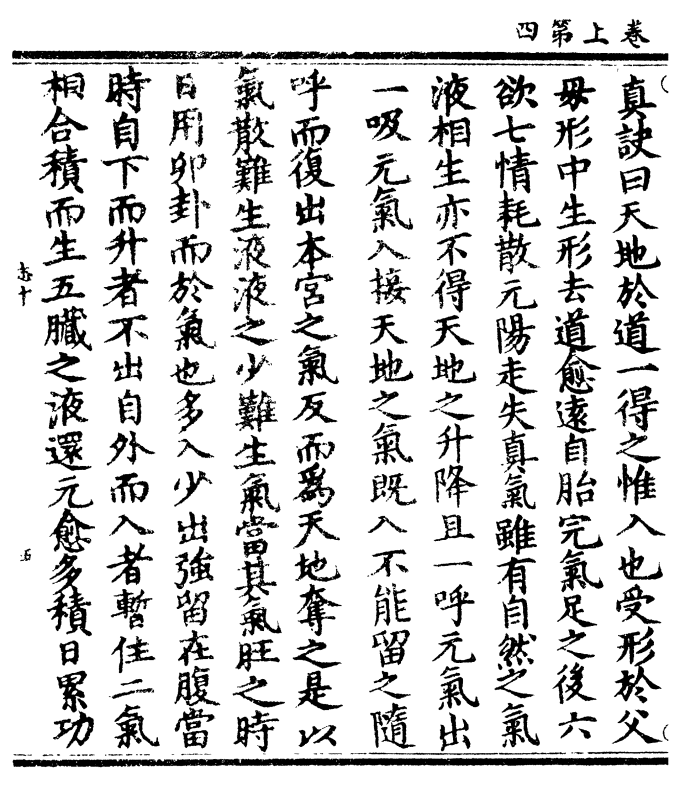 卷上第四
真訣曰天地於道一得之惟入也受形於父
母形中生形去道愈遠自胎完氣足之後六
欲七情耗散元陽走失真氣雖有自然之氣
液相生亦不得天地之升降且一呼元氣出
一吸元氣入接天地之氣既入不能留之隨
呼而復出本宮之氣反而為天地奪之是以
氣散難生液液之少難生氣當其氣旺之時
日用卯卦而於氣也多入少出強留在腹當
時自下而升者不出自外而入者暫住二氣
相合積而生五臟之液還元愈多積日累功
志十
五